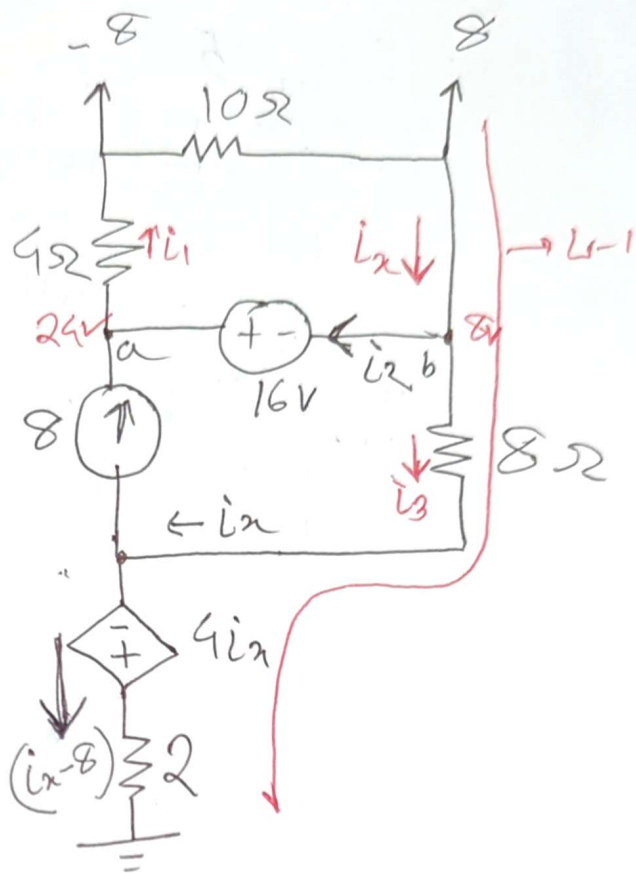 -8
8
10Ω
4Ω
i₁
iₓ
L-1
24V
a
+ -
i₂
b
8V
16V
8
8Ω
i₃
← ix
-
+
4ix
(ix-8)
2